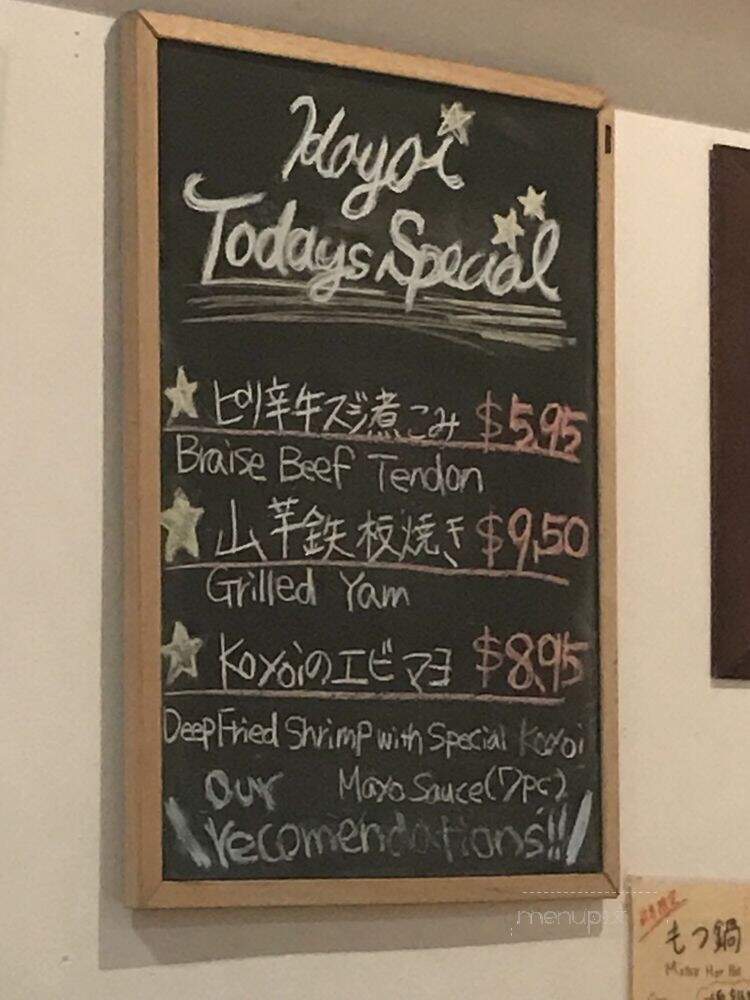 Koyoi
Todays Special
ピリ辛牛スジ煮こみ $5.95
Braise Beef Tendon
山芋鉄板焼き $9.50
Grilled Yam
Koyoiのエビマヨ $8.95
Deep Fried Shrimp with Special Koyoi
Mayo Sauce(7pc)
our
recomendations!!
menupix
もつ鍋